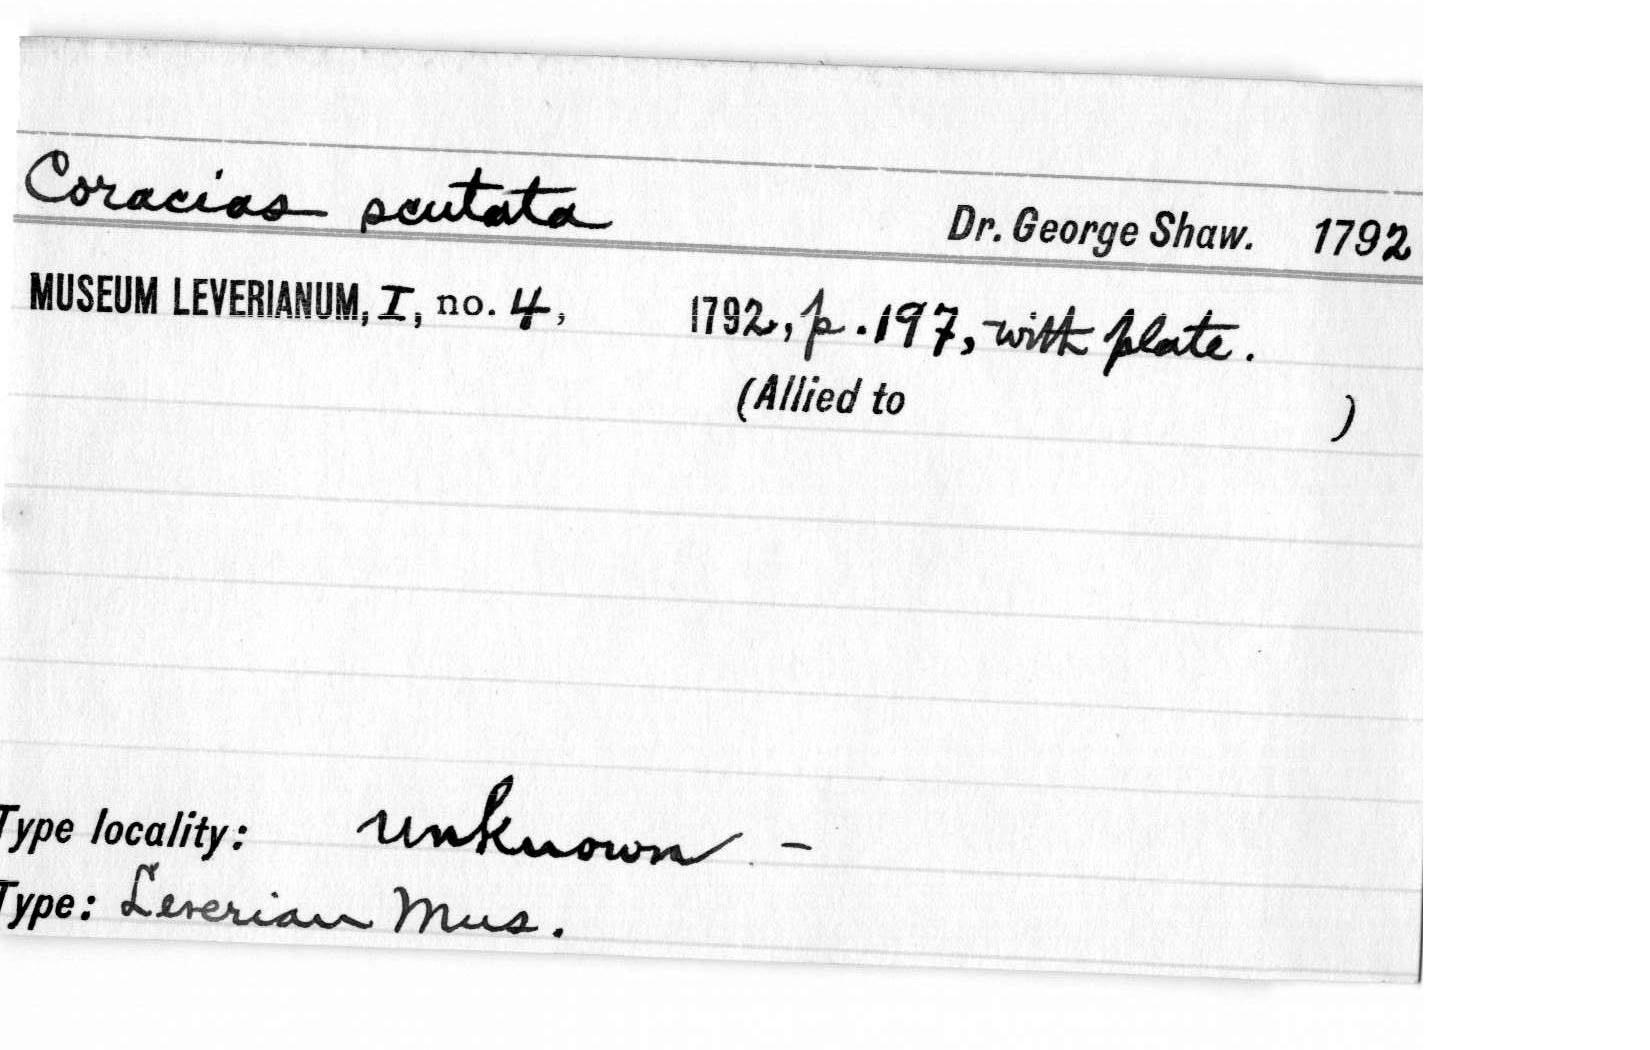 Coracias scutata Dr. George Shaw. 1792
MUSEUM LEVERIANUM, I, no. 4, 1792, p. 197, with plate.
(Allied to )
Type locality: unknown -
Type: Leverian Mus.